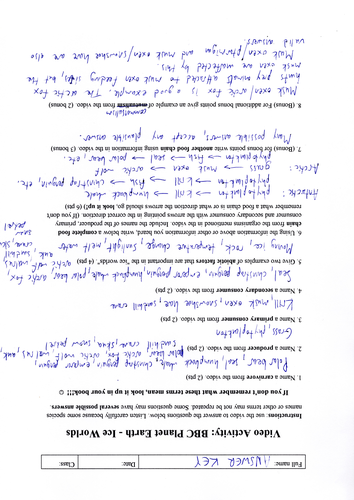 Full name: ANSWER KEY Date: Class:
Video Activity: BBC Planet Earth - Ice Worlds
Instructions: use the video to answer the questions below. Listen carefully because some species
names or other terms may not be repeated. Some questions may have several possible answers.
If you don't remember what these terms mean, look it up in your book!!! ☺
1. Name a carnivore from the video. (2 pts)
Polar bear, seal, humpback whale, chinstrap penguin, emperor penguin
polar bear, arctic fox, arctic wolf, walrus, auk,
sandhill crane, skua, snow petrel
2. Name a producer from the video. (2 pts)
Grass, phytoplankton
3. Name a primary consumer from the video. (2 pts)
Krill, musk oxen, snowshoe hare, sandhill crane
4. Name a secondary consumer from the video. (2 pts)
Seal, chinstrap penguin, emperor penguin, humpback whale, polar bear, arctic fox,
arctic wolf, walrus,
auk, sandhill
crane, skua
snow
petrel
5. Give two examples of abiotic factors that are important in the "ice worlds". (4 pts)
Moving ice, rock, temperature change, sunlight, melt water
6. Using the information above or other information you heard, write below a complete food
chain from the organisms mentioned in the video. Include the name of the producer, primary
consumer and secondary consumer with the arrows pointing in the correct direction. (If you don't
remember what a food chain is or what direction the arrows should go, look it up!) (6 pts)
Antarctic: phytoplankton → krill → humpback whale
phytoplankton → krill → fish → chinstrap penguin, etc.
Arctic: grass → musk oxen → arctic wolf
phytoplankton → fish → seal → polar bear, etc.
7. (Bonus) for bonus points write another food chain using information in the video (3 bonus)
Many possible answers, accept any plausible answer.
8. (Bonus) For additional bonus points give an example of mutualism from the video. (2 bonus)
commensalism
Musk oxen/arctic fox is a good example. The arctic fox
hunts prey animals attracted to musk oxen feeding sites, but the
musk oxen are unaffected by this.
Musk oxen/ptarmigan and musk oxen/snowshoe hare are also
valid answers.